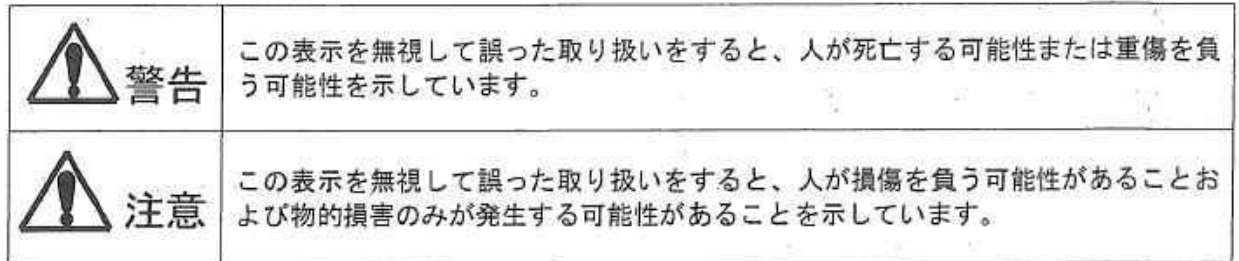 警告
この表示を無視して誤った取り扱いをすると、人が死亡する可能性または重傷を負
う可能性を示しています。
注意
この表示を無視して誤った取り扱いをすると、人が損傷を負う可能性があることお
よび物的損害のみが発生する可能性があることを示しています。